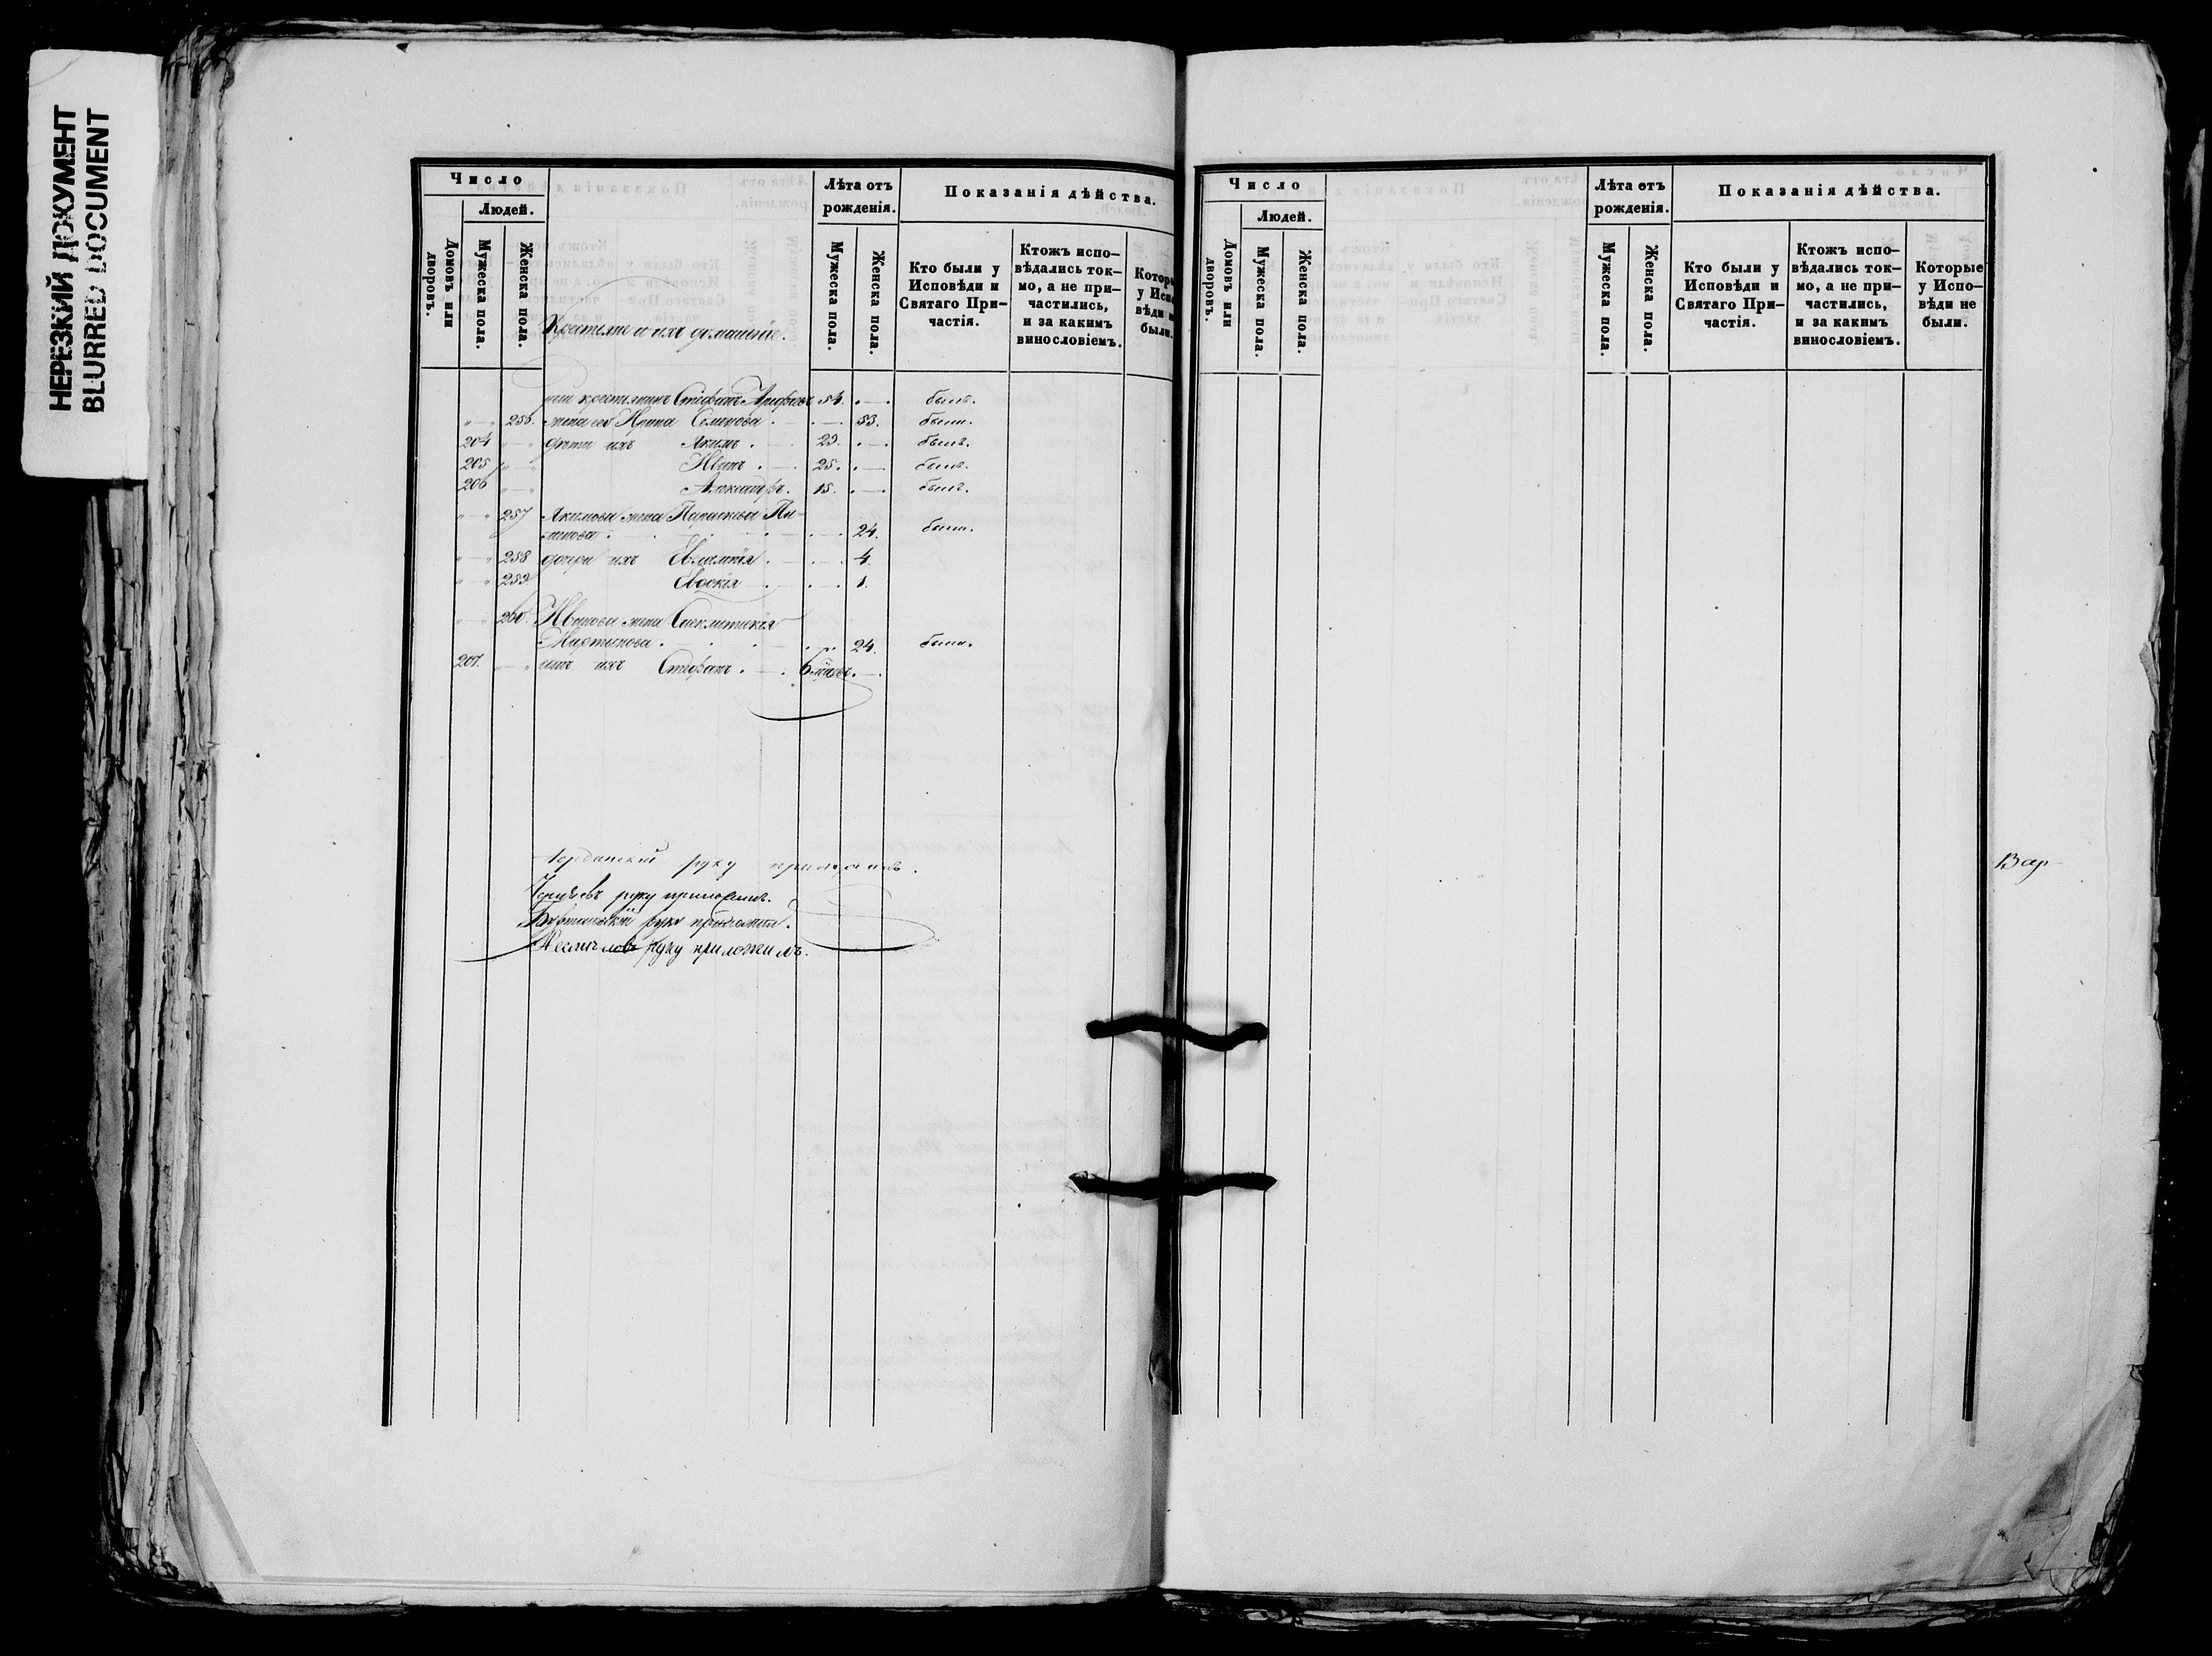 НЕРЕЗКИЙ ДОКУМЕНТ
BLURRED DOCUMENT
Число
Людей.
Домовъ или дворовъ.
Мужеска пола.
Женска пола.
Крестьяне и ихъ домашніе.
Лѣта отъ рожденія.
Мужеска пола.
Женска пола.
Показанія дѣйства.
Кто были у Исповѣди и Святаго Причастія.
Ктожъ исповѣдались токмо, а не причастились, и за какимъ винословіемъ.
крестьянинъ Стефанъ 54. былъ.
256. жена его Ирина Семенова 53. была.
204 дѣти ихъ Акимъ 29. былъ.
205 Иванъ 25. былъ.
206 Александръ 15. былъ.
257 Акимова жена Параскева
24. была.
258 дочери ихъ Евлампія 4.
259 Евдокія 1.
260. Иванова жена
Мартынова 24. была.
207. сынъ ихъ Стефанъ 6
руку приложилъ.
руку приложилъ.
руку приложилъ.
руку приложилъ.
Число
Людей.
Домовъ или дворовъ.
Мужеска пола.
Женска пола.
Лѣта отъ рожденія.
Мужеска пола.
Женска пола.
Показанія дѣйства.
Кто были у Исповѣди и Святаго Причастія.
Ктожъ исповѣдались токмо, а не причастились, и за какимъ винословіемъ.
Которые у Исповѣди не были.
Вар